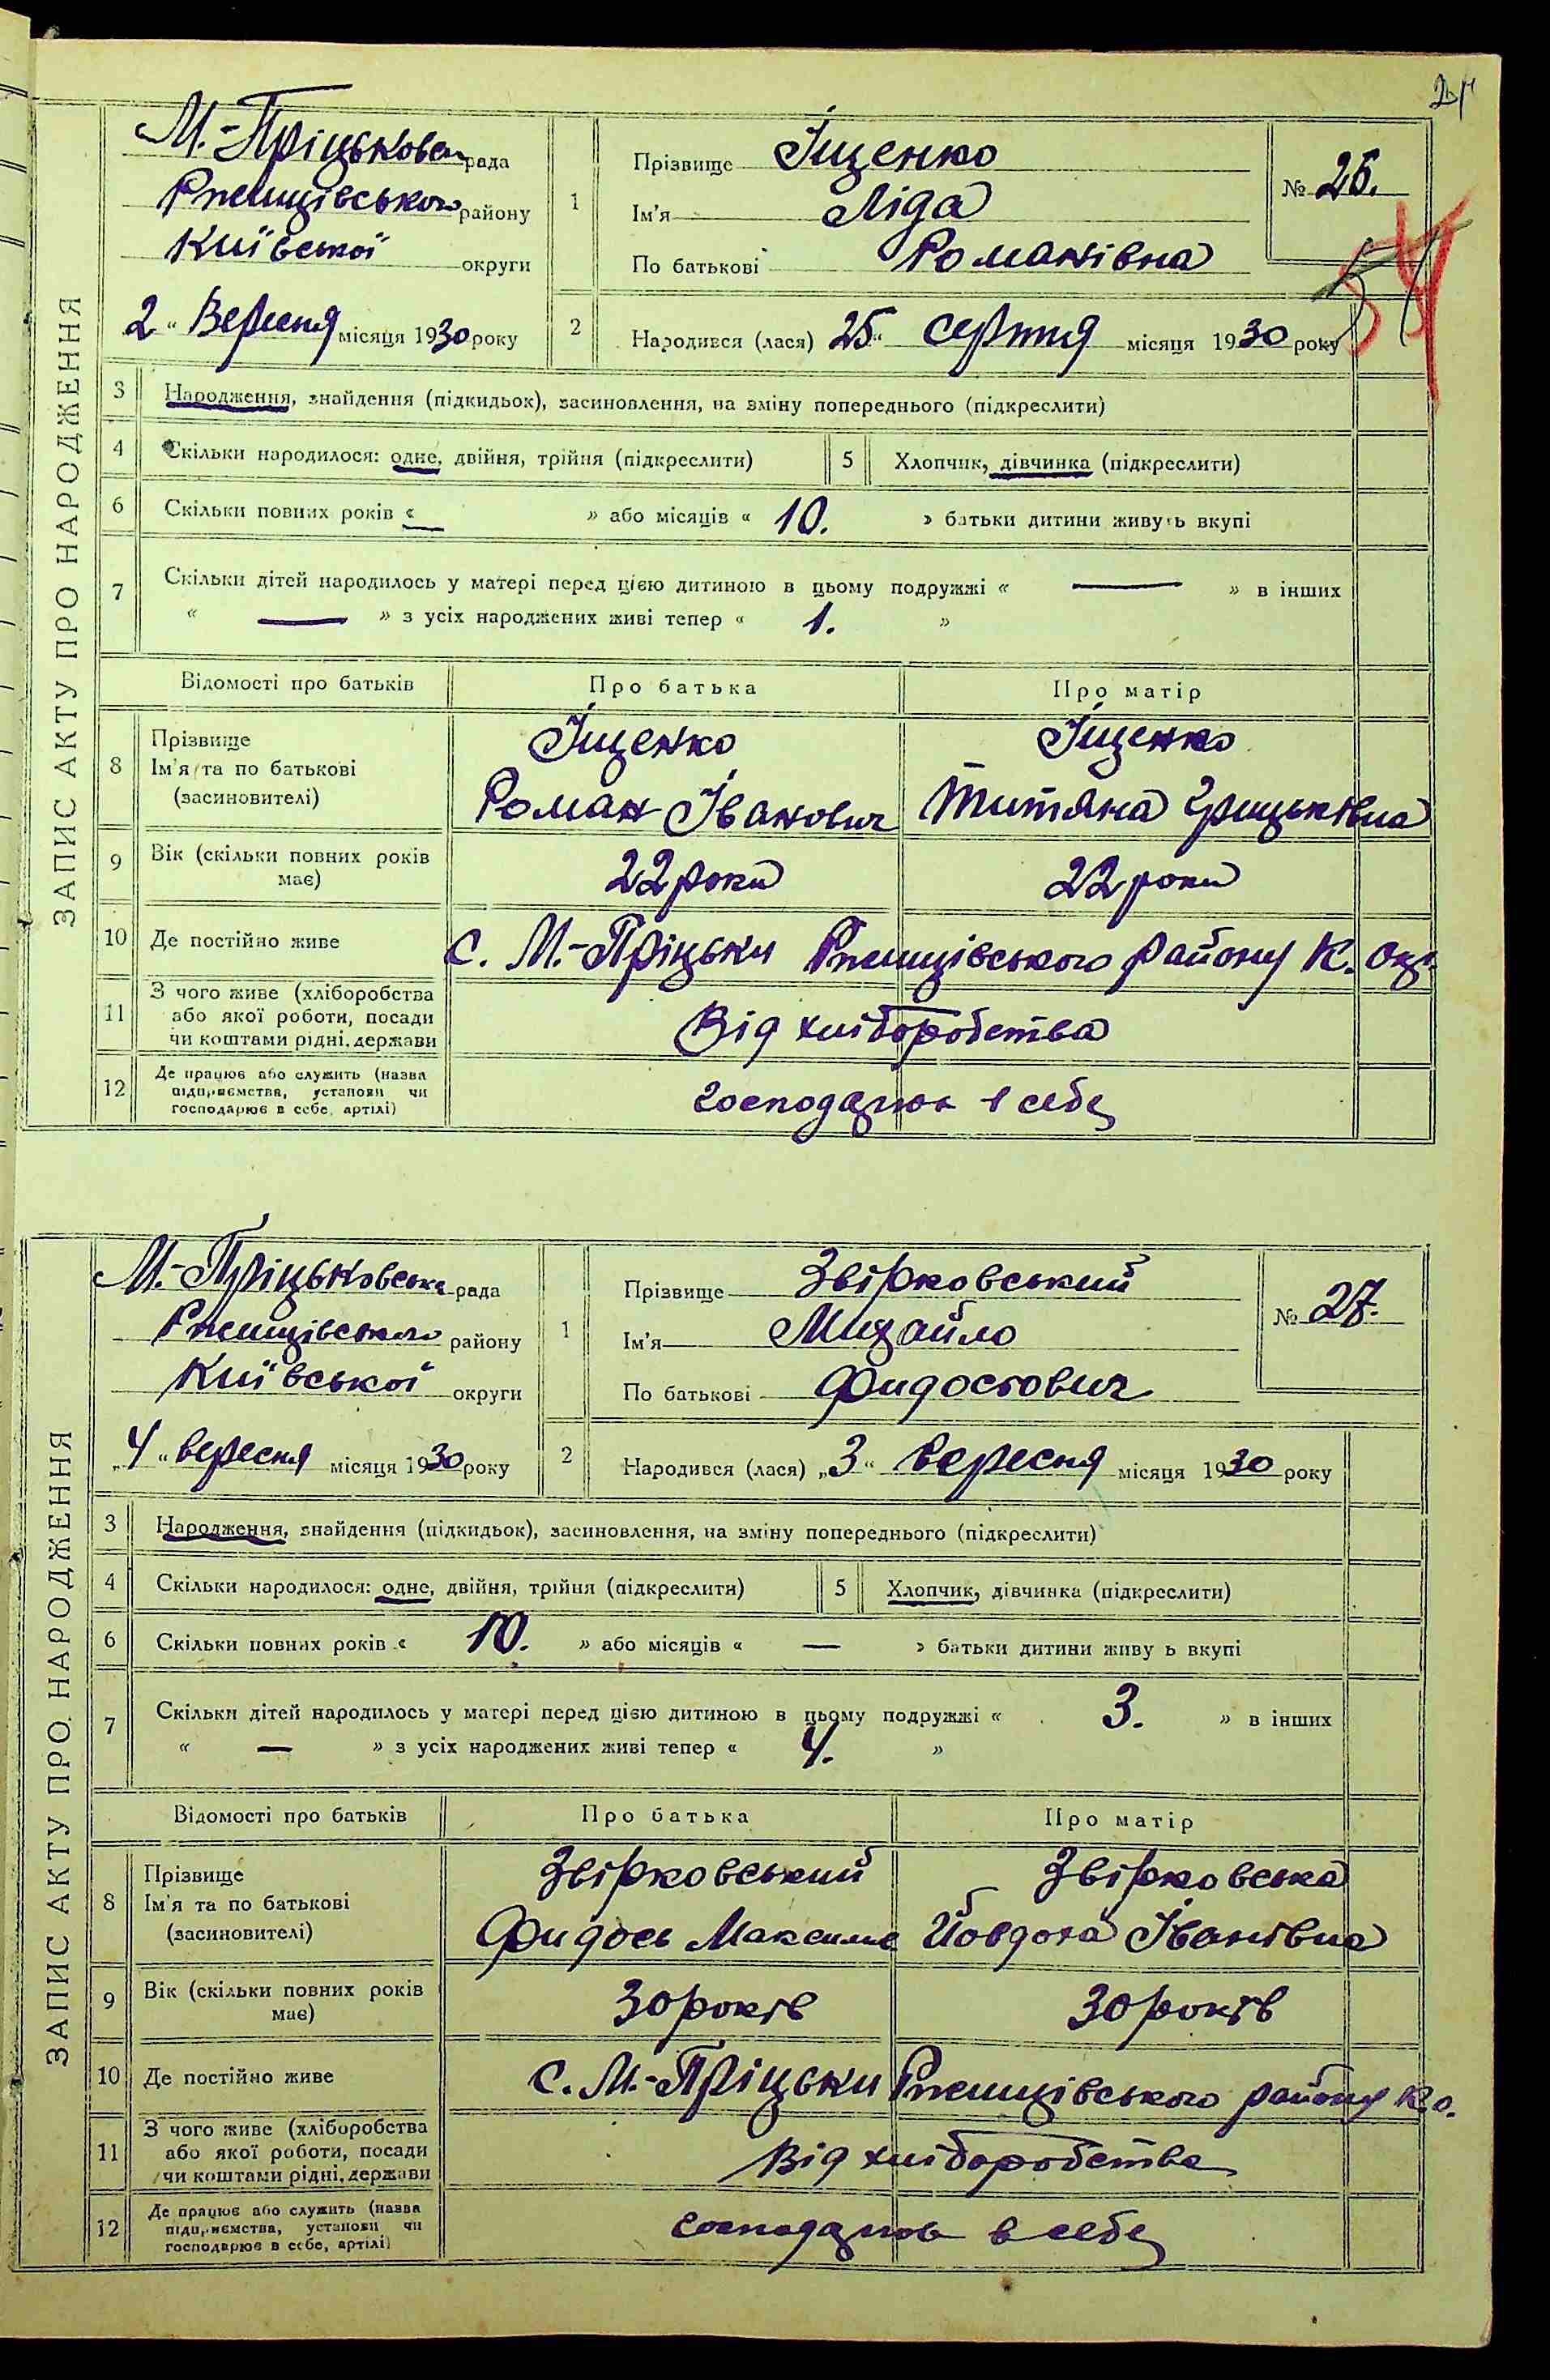 ЗАПИС АКТУ ПРО НАРОДЖЕННЯ
М.-Пріцьковсь рада
Ржищівського району
Київської округи
2 " Вересня місяця 1930 року
1 Прізвище Іщенко
Ім'я Ліда
По батькові Романівна
№ 26.
2 Народився (лася) 25 " серпня місяця 1930 року
3 Народження, знайдення (підкидьок), засиновлення, на зміну попереднього (підкреслити)
4 Скільки народилося: одне, двійня, трійня (підкреслити) 5 Хлопчик, дівчинка (підкреслити)
6 Скільки повних років « » або місяців « 10. » батьки дитини живуть вкупі
7 Скільки дітей народилось у матері перед цією дитиною в цьому подружжі « — » в інших
« — » з усіх народжених живі тепер « 1. »
Відомості про батьків Про батька Про матір
8 Прізвище Іщенко Іщенко
Ім'я та по батькові (засиновителі) Роман Іванович Титяна Грицьківна
9 Вік (скільки повних років має) 22 роки 22 роки
10 Де постійно живе с. М.-Пріцьки Ржищівського району К. окр.
11 З чого живе (хліборобства або якої роботи, посади чи коштами рідні, держави Від хліборобства
12 Де працює або служить (назва підприємства, установи чи господарює в себе, артілі) господарює в себе
ЗАПИС АКТУ ПРО НАРОДЖЕННЯ
М.-Пріцьковська рада
Ржищівського району
Київської округи
„4" вересня місяця 1930 року
1 Прізвище Звірковський
Ім'я Михайло
По батькові Фидосьович
№ 27.
2 Народився (лася) „3" вересня місяця 1930 року
3 Народження, знайдення (підкидьок), засиновлення, на зміну попереднього (підкреслити)
4 Скільки народилося: одне, двійня, трійня (підкреслити) 5 Хлопчик, дівчинка (підкреслити)
6 Скільки повних років « 10. » або місяців « — » батьки дитини живу ь вкупі
7 Скільки дітей народилось у матері перед цією дитиною в цьому подружжі « 3. » в інших
« — » з усіх народжених живі тепер « 4. »
Відомості про батьків Про батька Про матір
8 Прізвище Звірковський Звірковська
Ім'я та по батькові (засиновителі) Фидось Максимо Йовдоха Іванівна
9 Вік (скільки повних років має) 30 років 30 років
10 Де постійно живе с. М.-Пріцьки Ржищівського району К.о.
11 З чого живе (хліборобства або якої роботи, посади чи коштами рідні, держави Від хліборобства
12 Де працює або служить (назва підприємства, установи чи господарює в себе, артілі) господарює в себе